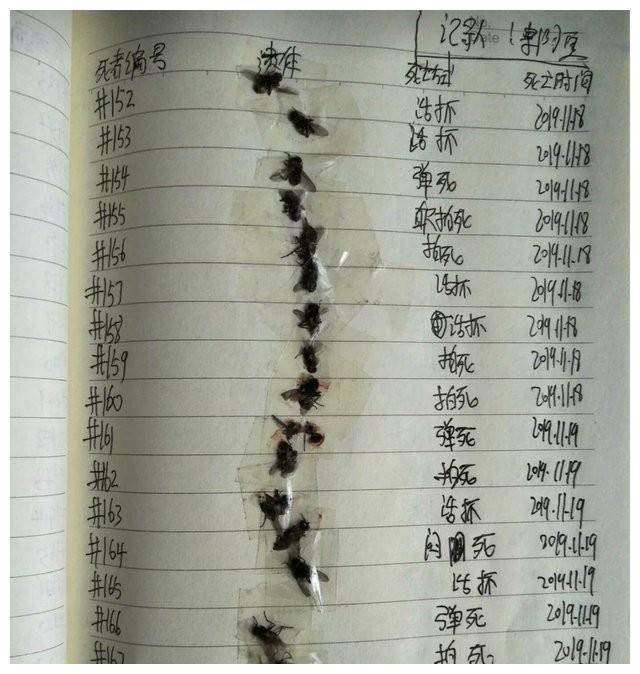 记录
死者编号 遗体 死亡方式 死亡时间
#152 活抓 2019.11.18
#153 活抓 2019.11.18
#154 弹死 2019.11.18
#155 拍死 2019.11.18
#156 拍死 2019.11.18
#157 活抓 2019.11.18
#158 活抓 2019.11.18
#159 拍死 2019.11.18
#160 拍死 2019.11.18
#161 弹死 2019.11.19
#162 拍死 2019.11.19
#163 活抓 2019.11.19
#164 闷死 2019.11.19
#165 活抓 2019.11.19
#166 弹死 2019.11.19
#167 拍死 2019.11.19